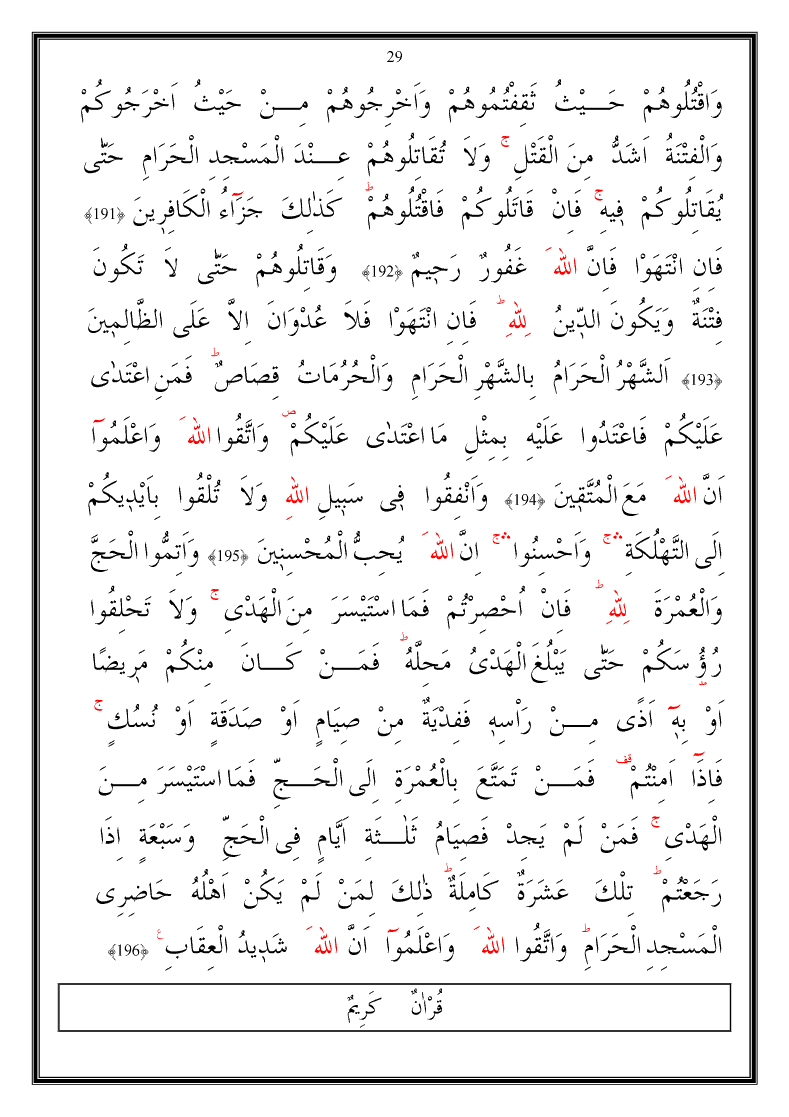 29
وَاقْتُلُوهُمْ حَـــيْثُ ثَقِفْتُمُوهُمْ وَاَخْرِجُوهُمْ مِـــنْ حَيْثُ اَخْرَجُوكُمْ
وَالْفِتْنَةُ اَشَدُّ مِنَ الْقَتْلِۚ وَلَا تُقَاتِلُوهُمْ عِـــنْدَ الْمَسْجِدِ الْحَرَامِ حَتّٰى
يُقَاتِلُوكُمْ ف۪يهِۚ فَاِنْ قَاتَلُوكُمْ فَاقْتُلُوهُمْۜ كَذٰلِكَ جَزَٓاءُ الْكَافِر۪ينَ ﴿191﴾
فَاِنِ انْتَهَوْا فَاِنَّ اللهَ غَفُورٌ رَح۪يمٌ ﴿192﴾ وَقَاتِلُوهُمْ حَتّٰى لَا تَكُونَ
فِتْنَةٌ وَيَكُونَ الدّ۪ينُ لِلهِۜ فَاِنِ انْتَهَوْا فَلَا عُدْوَانَ اِلَّا عَلَى الظَّالِم۪ينَ
﴿193﴾ اَلشَّهْرُ الْحَرَامُ بِالشَّهْرِ الْحَرَامِ وَالْحُرُمَاتُ قِصَاصٌۜ فَمَنِ اعْتَدٰى
عَلَيْكُمْ فَاعْتَدُوا عَلَيْهِ بِمِثْلِ مَا اعْتَدٰى عَلَيْكُمْۖ وَاتَّقُوا اللهَ وَاعْلَمُٓوا
اَنَّ اللهَ مَعَ الْمُتَّق۪ينَ ﴿194﴾ وَاَنْفِقُوا ف۪ى سَب۪يلِ اللهِ وَلَا تُلْقُوا بِاَيْد۪يكُمْ
اِلَى التَّهْلُكَةِۛۚ وَاَحْسِنُواۛۚ اِنَّ اللهَ يُحِبُّ الْمُحْسِن۪ينَ ﴿195﴾ وَاَتِمُّوا الْحَجَّ
وَالْعُمْرَةَ لِلهِۜ فَاِنْ اُحْصِرْتُمْ فَمَا اسْتَيْسَرَ مِنَ الْهَدْىِۚ وَلَا تَحْلِقُوا
رُؤُ۫سَكُمْ حَتّٰى يَبْلُغَ الْهَدْىُ مَحِلَّهُۜ فَمَـــنْ كَـــانَ مِنْكُمْ مَر۪يضًا
اَوْ بِه۪ٓ اَذًى مِـــنْ رَاْسِه۪ فَفِدْيَةٌ مِنْ صِيَامٍ اَوْ صَدَقَةٍ اَوْ نُسُكٍۚ
فَاِذَٓا اَمِنْتُمْ۠ قف فَمَـــنْ تَمَتَّعَ بِالْعُمْرَةِ اِلَى الْحَـــجِّ فَمَا اسْتَيْسَرَ مِـــنَ
الْهَدْىِۚ فَمَنْ لَمْ يَجِدْ فَصِيَامُ ثَلٰـــثَةِ اَيَّامٍ فِى الْحَجِّ وَسَبْعَةٍ اِذَا
رَجَعْتُمْۜ تِلْكَ عَشَرَةٌ كَامِلَةٌۜ ذٰلِكَ لِمَنْ لَمْ يَكُنْ اَهْلُهُ حَاضِرِى
الْمَسْجِدِ الْحَرَامِۜ وَاتَّقُوا اللهَ وَاعْلَمُٓوا اَنَّ اللهَ شَد۪يدُ الْعِقَابِ ع ﴿196﴾
قُرْاٰنٌ كَرِيمٌ